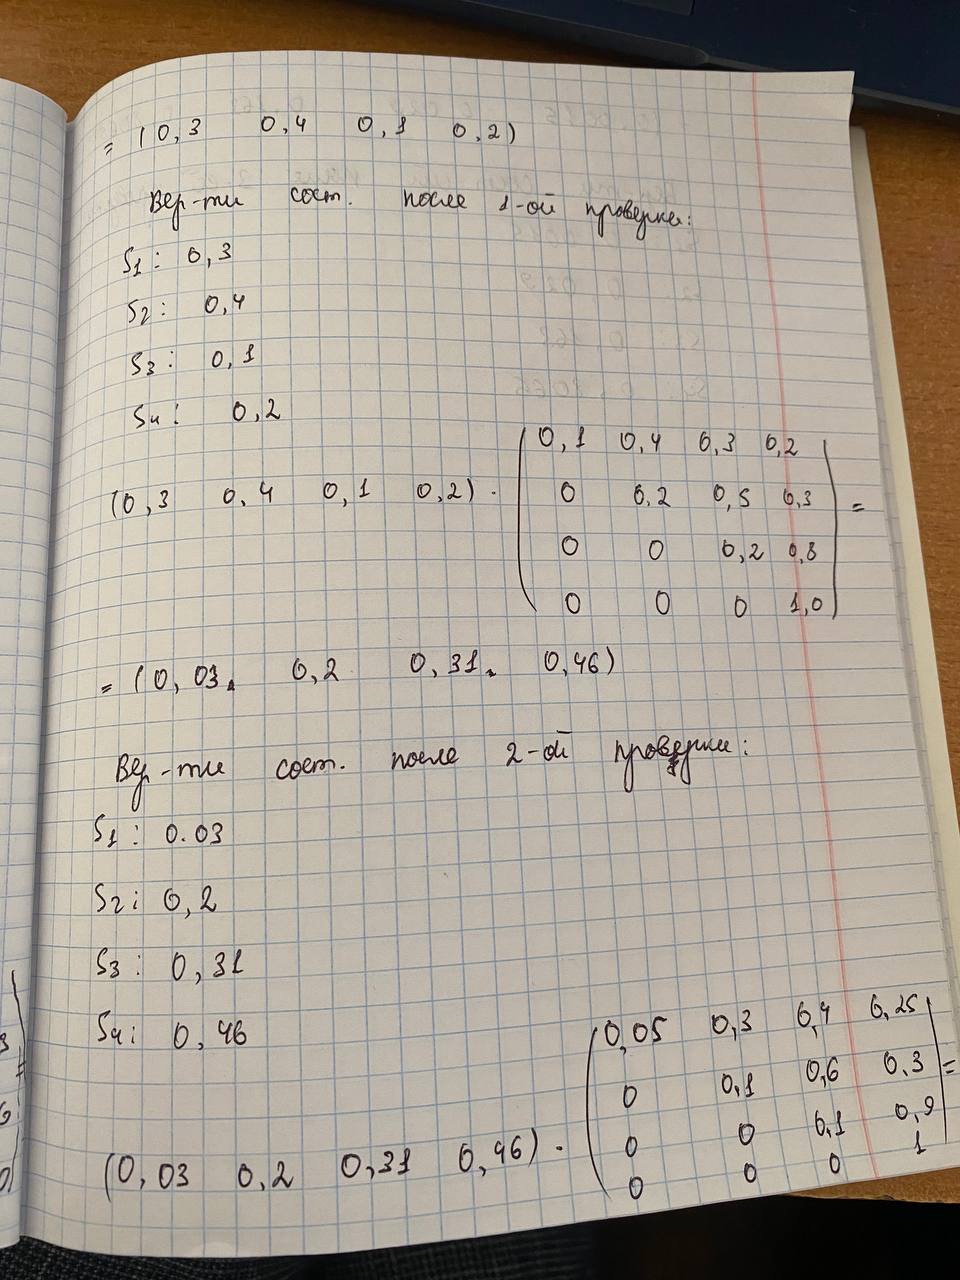 = (0,3 0,4 0,1 0,2)
Вер-ти сост. после 1-ой проверки:
S1: 0,3
S2: 0,4
S3: 0,1
S4: 0,2
(0,3 0,4 0,1 0,2) · (0,1 0,4 0,3 0,2
0 0,2 0,5 0,3
0 0 0,2 0,8
0 0 0 1,0) =
= (0,03 0,2 0,31 0,46)
Вер-ти сост. после 2-ой проверки:
S1: 0.03
S2: 0,2
S3: 0,31
S4: 0,46
(0,03 0,2 0,31 0,46) · (0,05 0,3 0,4 0,25
0 0,1 0,6 0,3
0 0 0,1 0,9
0 0 0 1) =